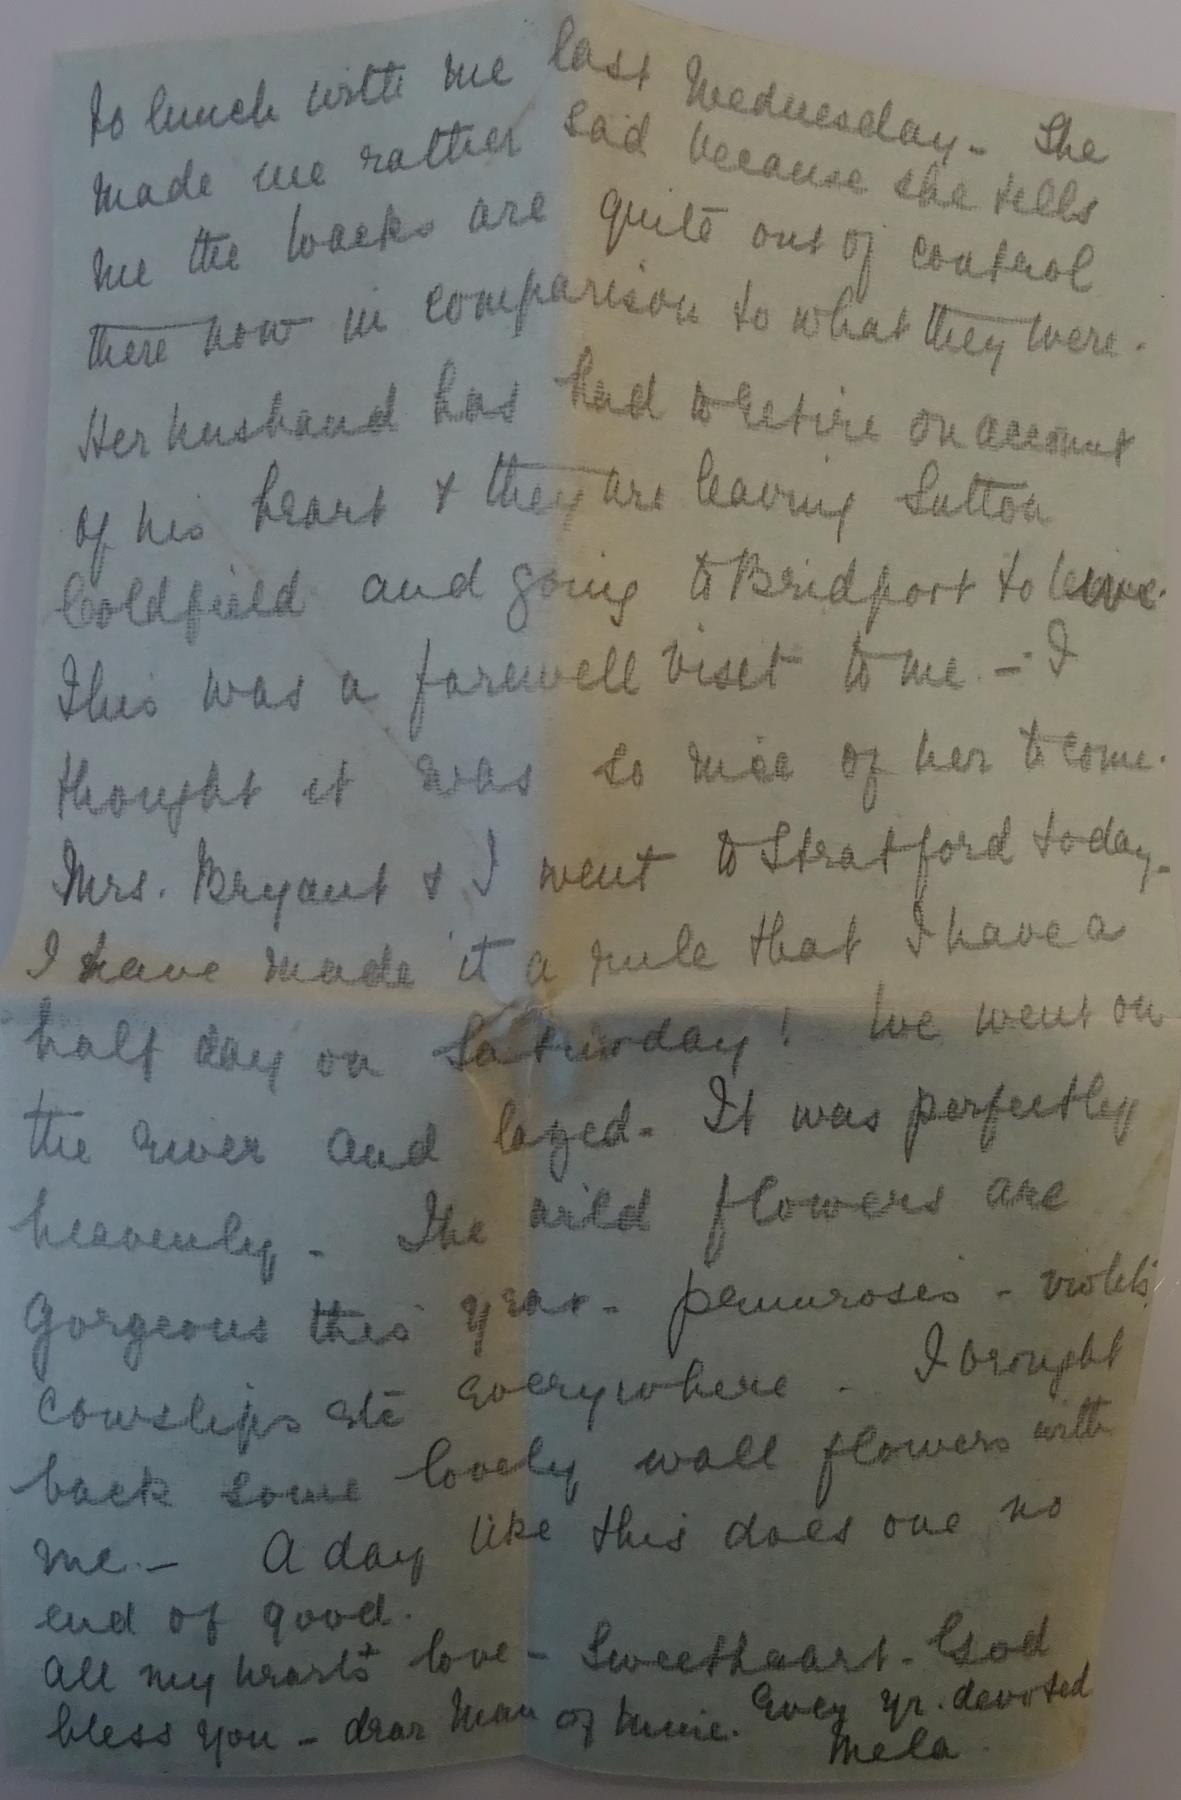 to lunch with me last Wednesday - She
made me rather sad because she tells
me the backs are quite out of control
there now in comparison to what they were.
Her husband has had to retire on account
of his heart & they are leaving Sutton
Coldfield and going to Bridport to live.
This was a farewell visit to me - I
thought it was so nice of her to come.
Mrs. Bryant & I went to Stratford today -
I have made it a rule that I have a
half day on Saturday! We went on
the river and lazed - It was perfectly
heavenly - The wild flowers are
gorgeous this year - primroses - violets
cowslips etc everywhere - I brought
back some lovely wall flowers with
me - A day like this does one no
end of good.
All my heart's love - Sweetheart - God
bless you - dear Man of mine. Ever yr. devoted
Mela